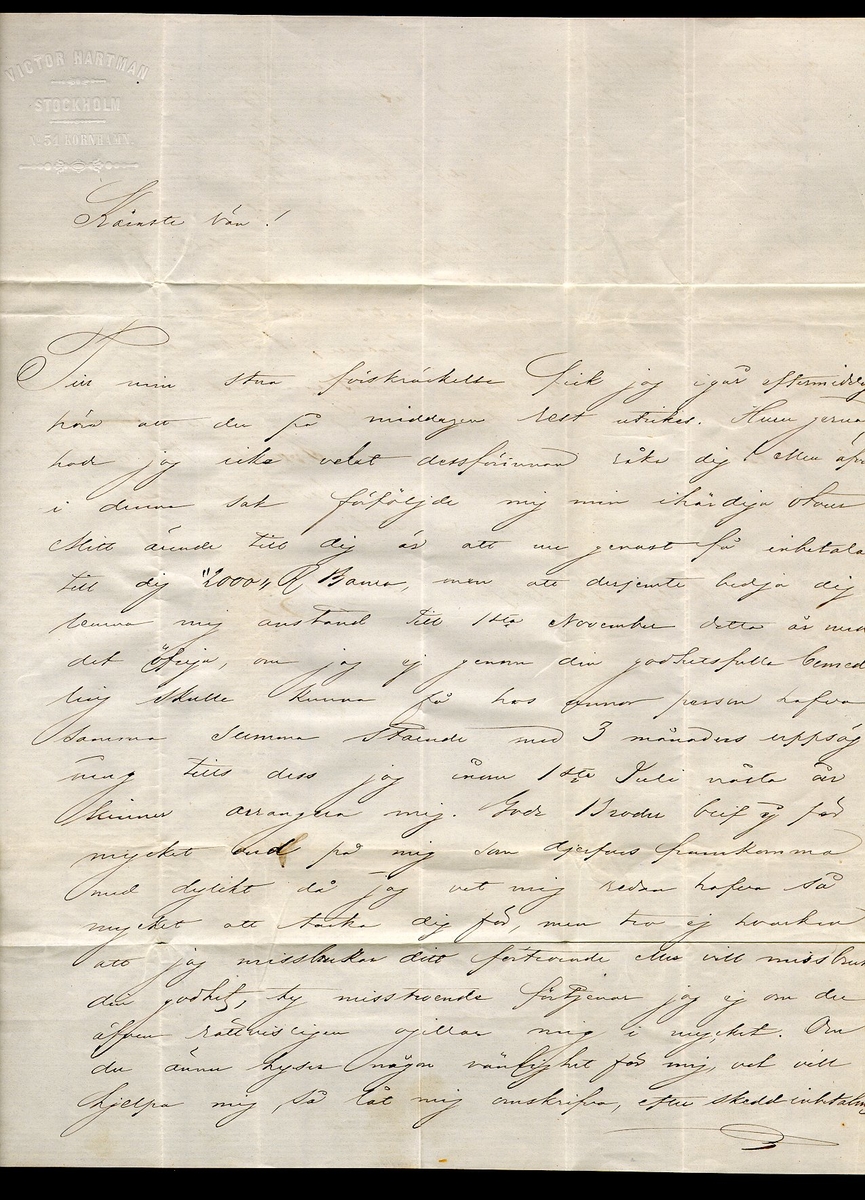 VICTOR HARTMAN
STOCKHOLM
No 51 KORNHAMN.
Käraste Vän!
Till min stora förskräckelse fick jag igår eftermiddag
höra att du på middagen rest utrikes. Huru gerna
hade jag icke velat dessförinnan råka dig! Men äfven
i denna sak förföljde mig min ihärdiga otur
Mitt ärende till dig är att nu genast få inbetala
till dig "2000" R Banco, men att derjemte bedja dig
lemna mig anstånd till 1sta November detta år med
det öfriga, om jag ej genom din godhetsfulla bemed
ling skulle kunna få hos annor person hafva
samma summa stående med 3 månaders uppsäg
ning tills dess jag inom 1sta Juli nästa år
hinner arrangera mig. Gode Broder blif ej för
mycket ond på mig som djerfves framkomma
med dylikt då jag vet mig redan hafva så
mycket att tacka dig för, men tro ej hvarken
att jag missbrukar ditt förtroende eller vill missbruka
din godhet, ty misstroende förtjenar jag ej om du
äfven rättvisligen ogillar mig i mycket. Om
du ännu hyser någon vänlighet för mig, och vill
hjelpa mig, så låt mig omskrifva, efter skedd inbetalning